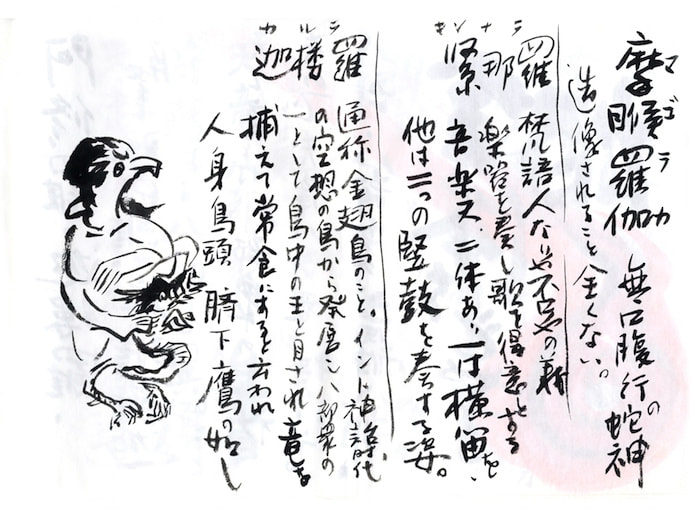 摩睺羅伽 無足腹行の蛇神
マゴラカ
造像されること全くない。
緊那羅 梵語人なりや不や の義
キンナラ
楽器を奏し歌を得意とする
音楽天、二体あり、一は横笛を、
他は二つの竪鼓を奏する姿。
迦楼羅 通称金翅鳥のこと。インド神話時代
カルラ
の空想の鳥から発磨し八部衆の
一として鳥中の王と目され竜を
捕えて常食にあると云われ
人身鳥頭 臍下鷹の如し